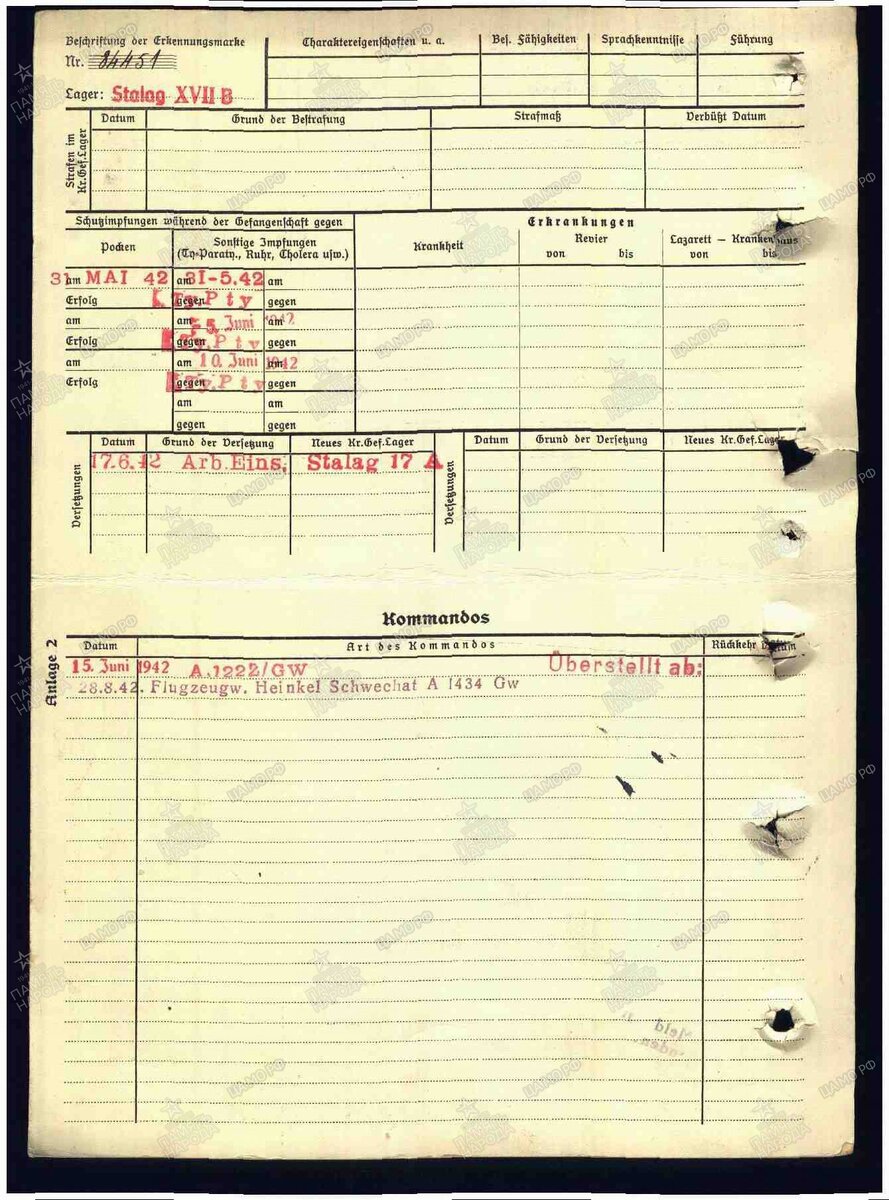 Beschriftung der Erkennungsmarke
Nr. 84451
Lager: Stalag XVII B
Charaktereigenschaften u. a.
Bes. Fähigkeiten
Sprachkenntnisse
Führung
Strafen im Kr.Gef.Lager
Datum
Grund der Bestrafung
Strafmaß
Verbüßt Datum
Schutzimpfungen während der Gefangenschaft gegen
Erkrankungen
Pocken
Sonstige Impfungen
(Ty-Paraty., Ruhr, Cholera usw.)
Krankheit
Revier
von bis
Lazarett – Krankenhaus
von bis
31 am MAI 42 am 31-5.42 am
Erfolg gegen Ty.Pty gegen
am am 5. Juni 1942 am
Erfolg gegen Ty.Pty gegen
am am 10. Juni 1942 am
Erfolg gegen Ty.Pty gegen
am am
gegen gegen
Versetzungen
Datum Grund der Versetzung Neues Kr.Gef.Lager
17.6.42 Arb.Eins. Stalag 17 A
Versetzungen
Datum Grund der Versetzung Neues Kr.Gef.Lager
Kommandos
Anlage 2
Datum Art des Kommandos Rückkehr Datum
15. Juni 1942 A.1222/GW Überstellt ab:
28.8.42. Flugzeugw. Heinkel Schwechat A 1434 Gw
ПАМЯТЬ НАРОДА
ЦАМО РФ